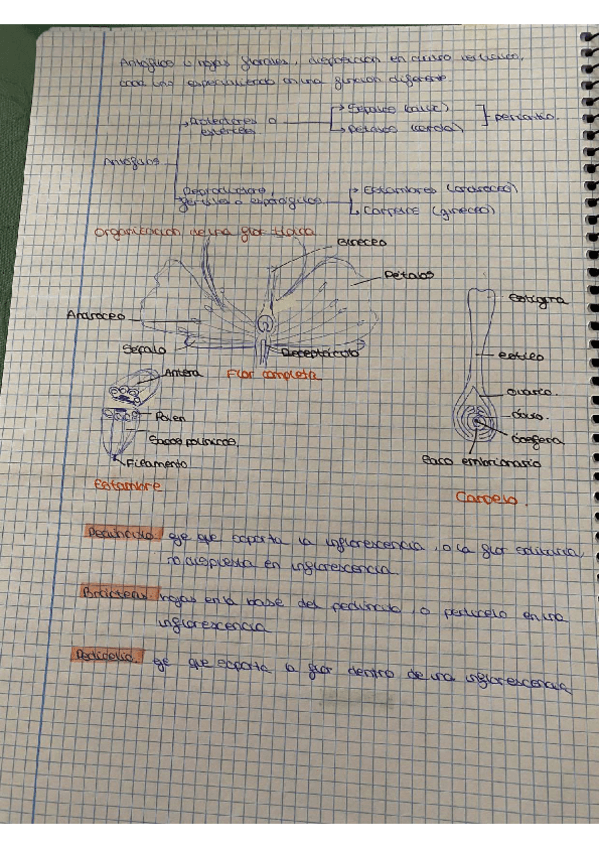 Antófilos u hojas florales, disposición en ciclo verticilos,
cada uno especializado en una función diferente.
Antófilos
Protectores o estériles
Sépalos (cáliz)
Pétalos (corola)
periantio.
Reproductores, fértiles o esporófilos
Estambres (androceo)
Carpelos (gineceo)
Organización de una flor típica
Gineceo
Pétalos
Androceo
Sépalo
Receptáculo
Flor completa
Antera
Polen
Sacos polínicos
Filamento
Estambre
Estigma
estilo
ovario.
óvulo.
oosfera
Saco embrionario
Carpelo.
Pedúnculo: eje que soporta la inflorescencia, o la flor solitaria,
no dispuesta en inflorescencia.
Brácteas: hojas en la base del pedúnculo, o pedicelo en una
inflorescencia
Pedicelo: eje que soporta la flor dentro de una inflorescencia